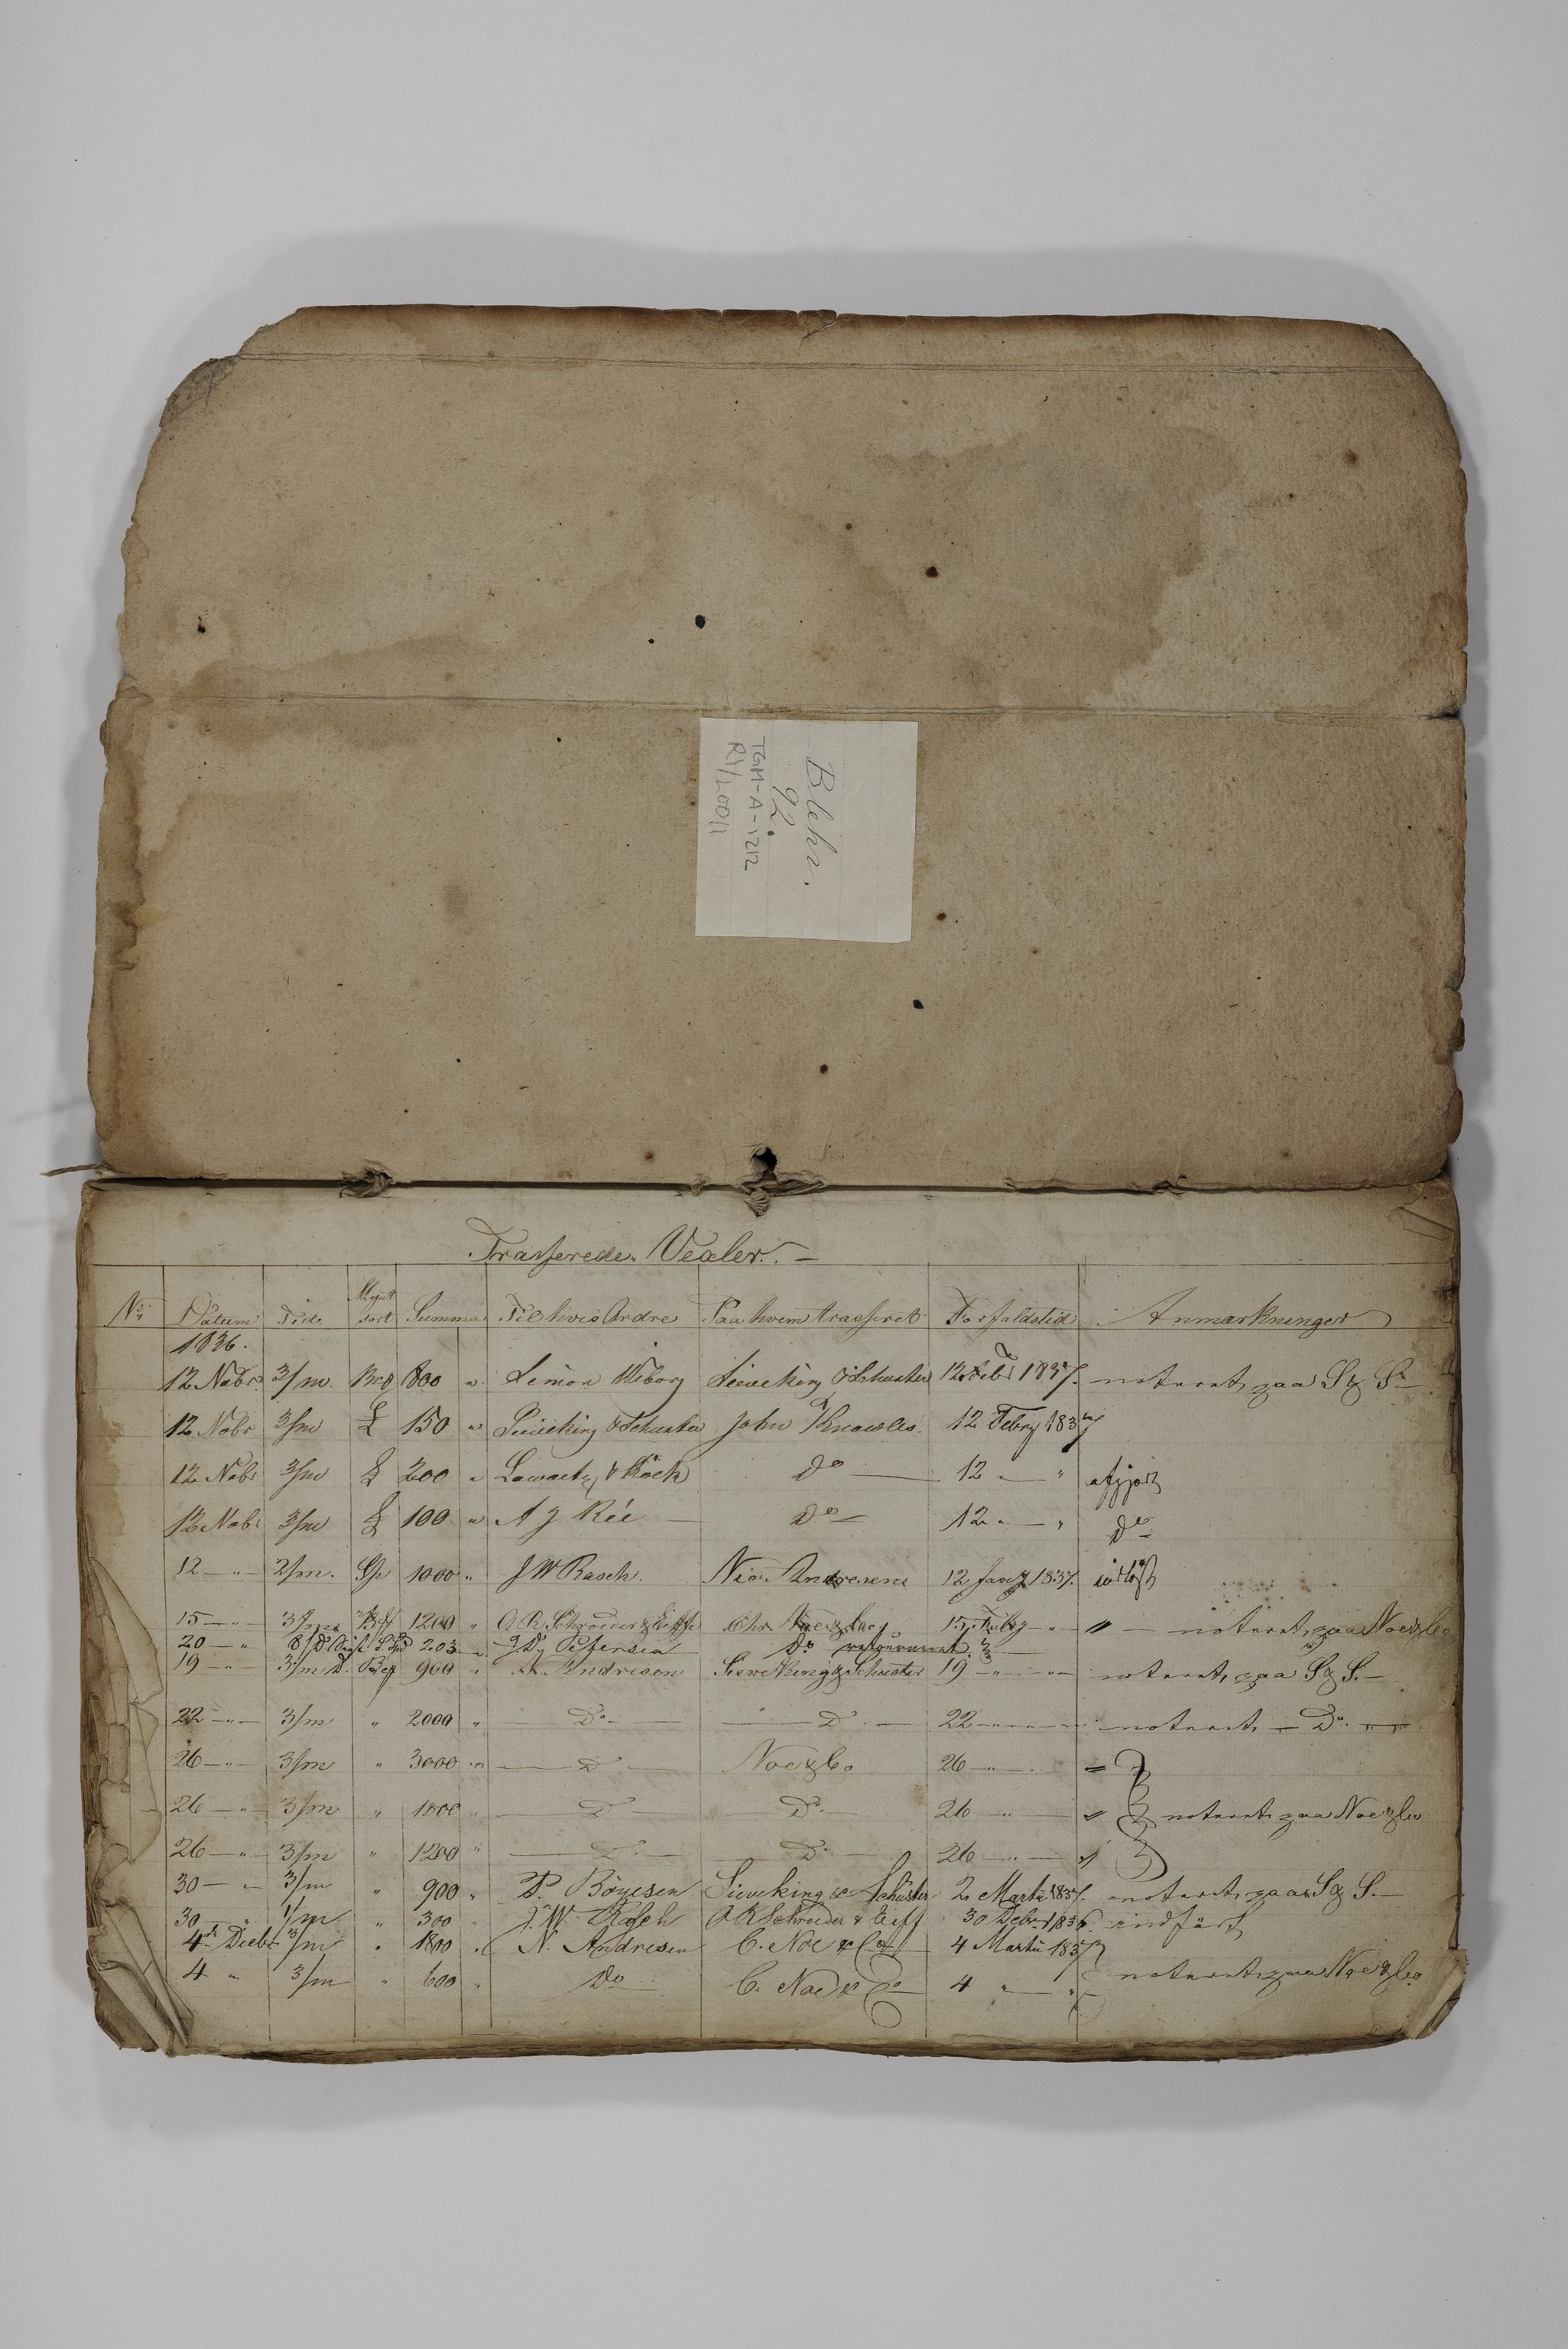 Blehr.
92.
TGM-A-1212
Trasserede Vexler. —
No. Datum Tid. Mynt sort Summa Til hvis Ordre Paa hvem trasseret Forfaldstid Anmærkninger
1836.
12 Nobr. 3/m. 800 " Simon Wiborg Sieveking & Schuster 12 Feb 1837. noteret paa S & S
12 Nobr 3/m £ 150 " Sieveking & Schuster John Knowles. 12 Febry 1837
12 Nobr 3/m £ 200 " & Koch Do 12 — " afgjort
12 Nobr 3/m £ 100 " A J Rée — Do 12 — " Do
12 — " — 2/m. Sp 1000 " J W Rasch. Nic. Andresen 12 Jany 1837. indløst
15 — " — 3/m 1200 " A R Schroeder & Eiffe Chr Noe & Co 15 Febry — " — noteret paa Noe & Co
20 — " 8/D 203 J D Petersen Do retourneret
19 — " 3/m D. 900 " N. Andresen Sieveking & Schuster 19 — " — noteret paa S & S. —
22 — " — 3/m " 2000 " — Do — — Do. — 22 — " — noteret — Do. —
26 — " — 3/m " 3000 " — Do — Noe & Co 26 — " —
26 — " — 3/m " 1800 " — Do — — Do. — 26 — " — " noteret paa Noe & Co
26 — " — 3/m " 1200 " — Do. — — Do — 26 — " — "
30 — " 3/m " 900 " P. Böyesen Sieveking & Schuster 2 Martii 1837. noteret paa S & S. —
30 " 1/m " 300 " J. W. Rasch A R Schröder & Eiff 30 Debr 1836. indført
4de Decbr 3/m " 1800 " N. Andresen C. Noe & Co 4 Martii 1837
4 " 3/m " 600 " Do C. Noe & Co 4 " — " noteret paa Noe & Co